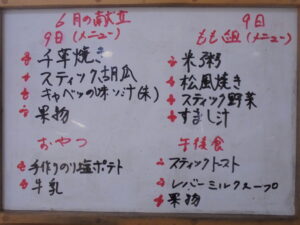 6月の献立
9日(メニュー)
千草焼き
スティック胡瓜
キャベツの味ソ汁(朱)
果物
おやつ
手作りのり塩ポテト
牛乳
9日
もも組(メニュー)
米粥
松風焼き
スティック野菜
すまし汁
午後食
スティックトースト
レバーミルクスープ
果物